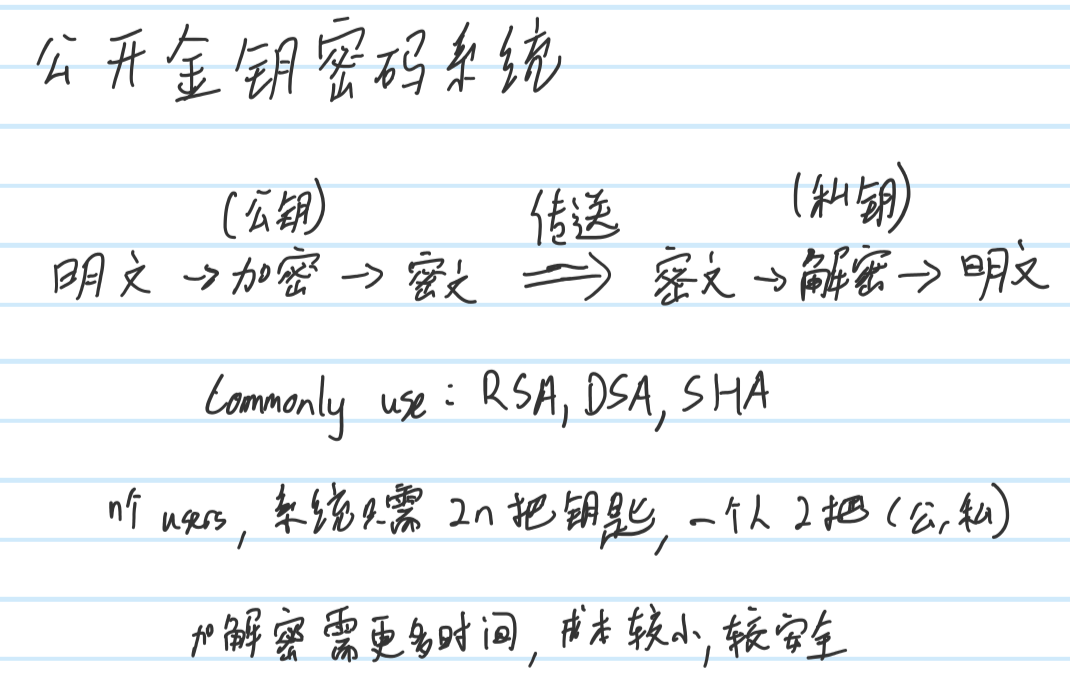 公开金钥密码系统
(公钥) 传送 (私钥)
明文 → 加密 → 密文 ⇒ 密文 → 解密 → 明文
Commonly use : RSA, DSA, SHA
n个 users, 系统只需 2n 把钥匙, 一个人 2把 (公, 私)
加解密需更多时间, 成本较小, 较安全